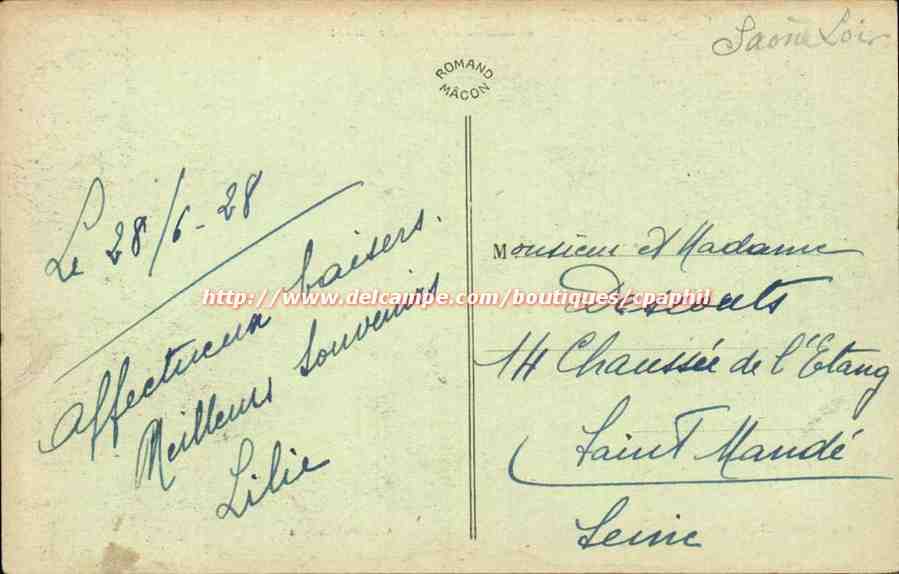 Saône Loir
ROMAND
MÂCON
Le 28/6-28
Affectueux baisers.
Meilleurs souvenirs
Lilie
Monsieur et Madame
http://www.delcampe.com/boutiques/cpaphil
14 Chaussée de l'Etang
Saint Mandé
Seine